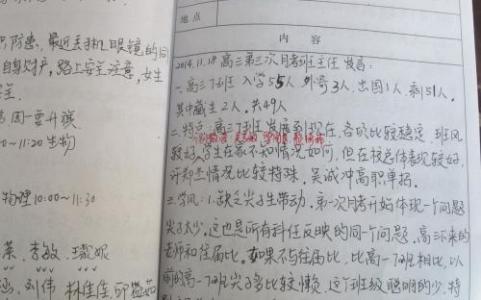 识, 防患, 最近丢手机, 眼镜的同
自身财产, 路上安全注意, 女生
周一要升旗
0~11:20 生物
物理 10:00~11:30
李敏
刘伟 林佳佳
地点
内容
2014.11.18 高三第三次月考班主任发言:
一. 高三7班 入学55人 外寄3人, 出国1人, 剩51人,
其中藏生2人, 共49人
二. 特点: 高三7班发展到现在, 各的比较稳定, 班风
较好, 学生在家不知情况如何, 但在校总体表现较好,
情况比较特殊, 吴诚冲高职单招.
三. 学风: 1. 缺乏尖子生带动, 第一次月考开始体现一个问题
尖子太少, 这也是所有科任反映的同一个问题, 高三下来的
老师和往届比, 如果不与往届比, 比高一7班相比, 以
前的高一7班尖子多比较懒, 这个班级聪明的少, 特